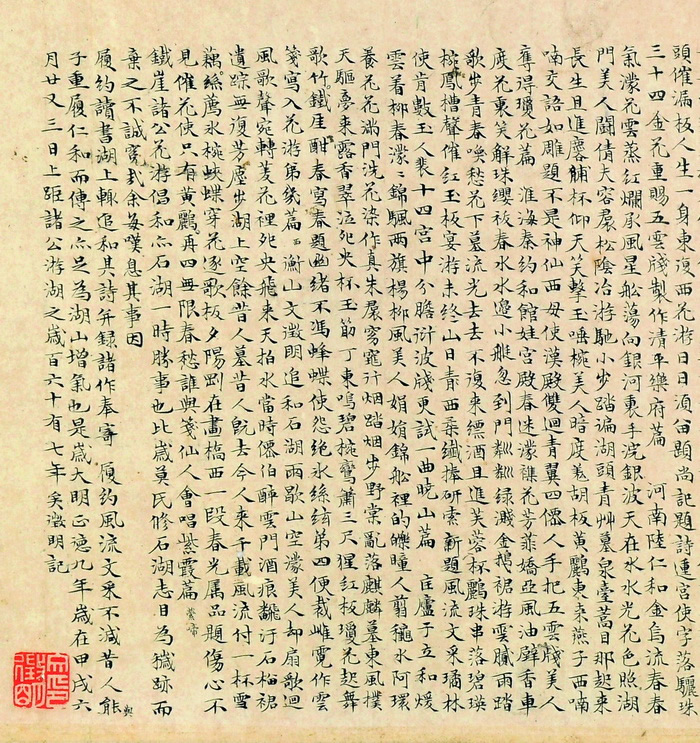 頭催漏板人生一身東復西花游日日須由題尚記題詩連宮使字落驪珠
三十四金花重賜五雲牋製作清平樂府篇　河南陸仁和金烏流春春
氣濛花雲蒸紅爛承風星舩蕩向銀河裏手浣銀波天在水水光花色照湖
門美人鬬倩夫容裠松陰冶游馳小步踏遍湖頭青艸墓泉臺蒿目那起来
長生且進麐脯杯仰天笑擊玉唾椀美人暗度羗胡板黃鸝東来燕子西喃
喃交語如雕題不是神仙西母使漢殿雙迴青翼四僊人手把五雲牋美人
奪得瓊花篇　淮海秦約和館娃宮殿春迷濛襍花芳菲嬌亞風油壁香車
度花裏笑解珠纓祓春水水邊小艇忽到門粼粼绿濺金鵝裙游雲膩雨踏
歌步青春喚愁花下墓流光去去不復来縹酒且進芙蓉杯鸝珠串落碧瑛
椀鳳槽聲催紅玉板宴游未終山日青西柰纖捧研索新題風流文采璚林
使肯數玉人裴十四宮中分膽衍波牋更試一曲晓山篇　匡廬于立和煖
雲着柳春濛濛錦颿兩旗楊柳風美人娟娟錦舩裡的皪瞳人剪龝水阿環
養花花滿門洗花染作真朱裠窈窕行烟踏烟步野棠亂落麒麟墓東風撲
天驅夣来露香翠泣死央杯玉筯丁東鳴碧椀鸞簫三尺猩紅板瓊花起舞
歌竹鐵厓酣春寫春題幽緒不馮蜂蝶使怨绝水絲絃第四便裁雌霓作雲
箋寫入花游第幾篇　衡山文徵明追和石湖雨歇山空濛美人却扇歌迴
風歌聲宛轉菱花裡死央飛来天拍水當時僊伯醉雲門酒痕飜汙石榴裙
遺踪無復芳塵步湖上空餘昔人墓昔人既去今人来千載風流付一杯雪
藕絲薦氷椀蛺蝶穿花逐歌板夕陽剛在畫橋西一段春光属品題傷心不
見催花使只有黃鸝再四無限春愁誰與箋仙人會唱紫霞篇
鐵崖諸公花游倡和亦石湖一時勝事也此歲莫氏修石湖志目為獩跡而
棄之不誠寃哉余每嘆息其事因
履約讀書湖上輒追和其詩并録諸作奉寄　履約風流文采不減昔人能與
子重履仁和而傳之亦足為湖山增氣也是歲大明正徳九年歲在甲戌六
月廿又三日上距諸公游湖之歲百六十有七年矣徵明記